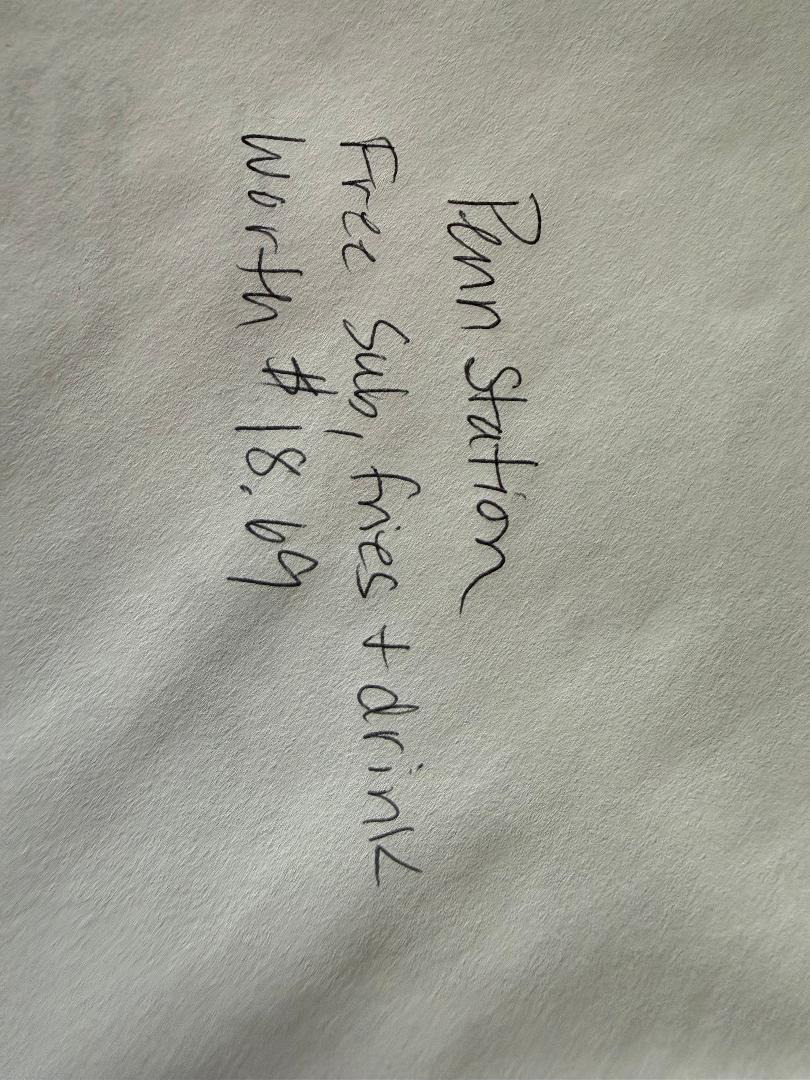 Penn Station
Free Sub, fries + drink
Worth $18.69